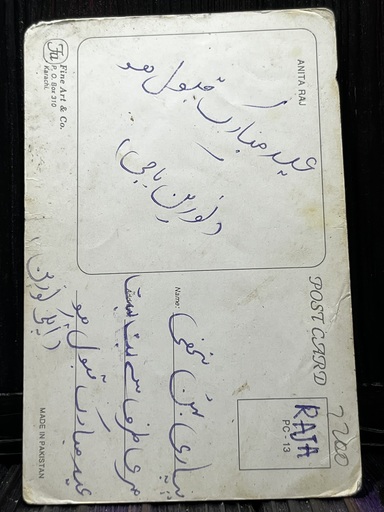 ANITA RAJ
عید مبارک قبول ہو
(نورین باجی)
Fa
Fine Art & Co.
P. O. Box 310
Karachi.
POST CARD
RAJA
PC 13
Name:
پیاری بہن
میری طرف سے بہت بہت
عید مبارک قبول ہو
نورین)
MADE IN PAKISTAN